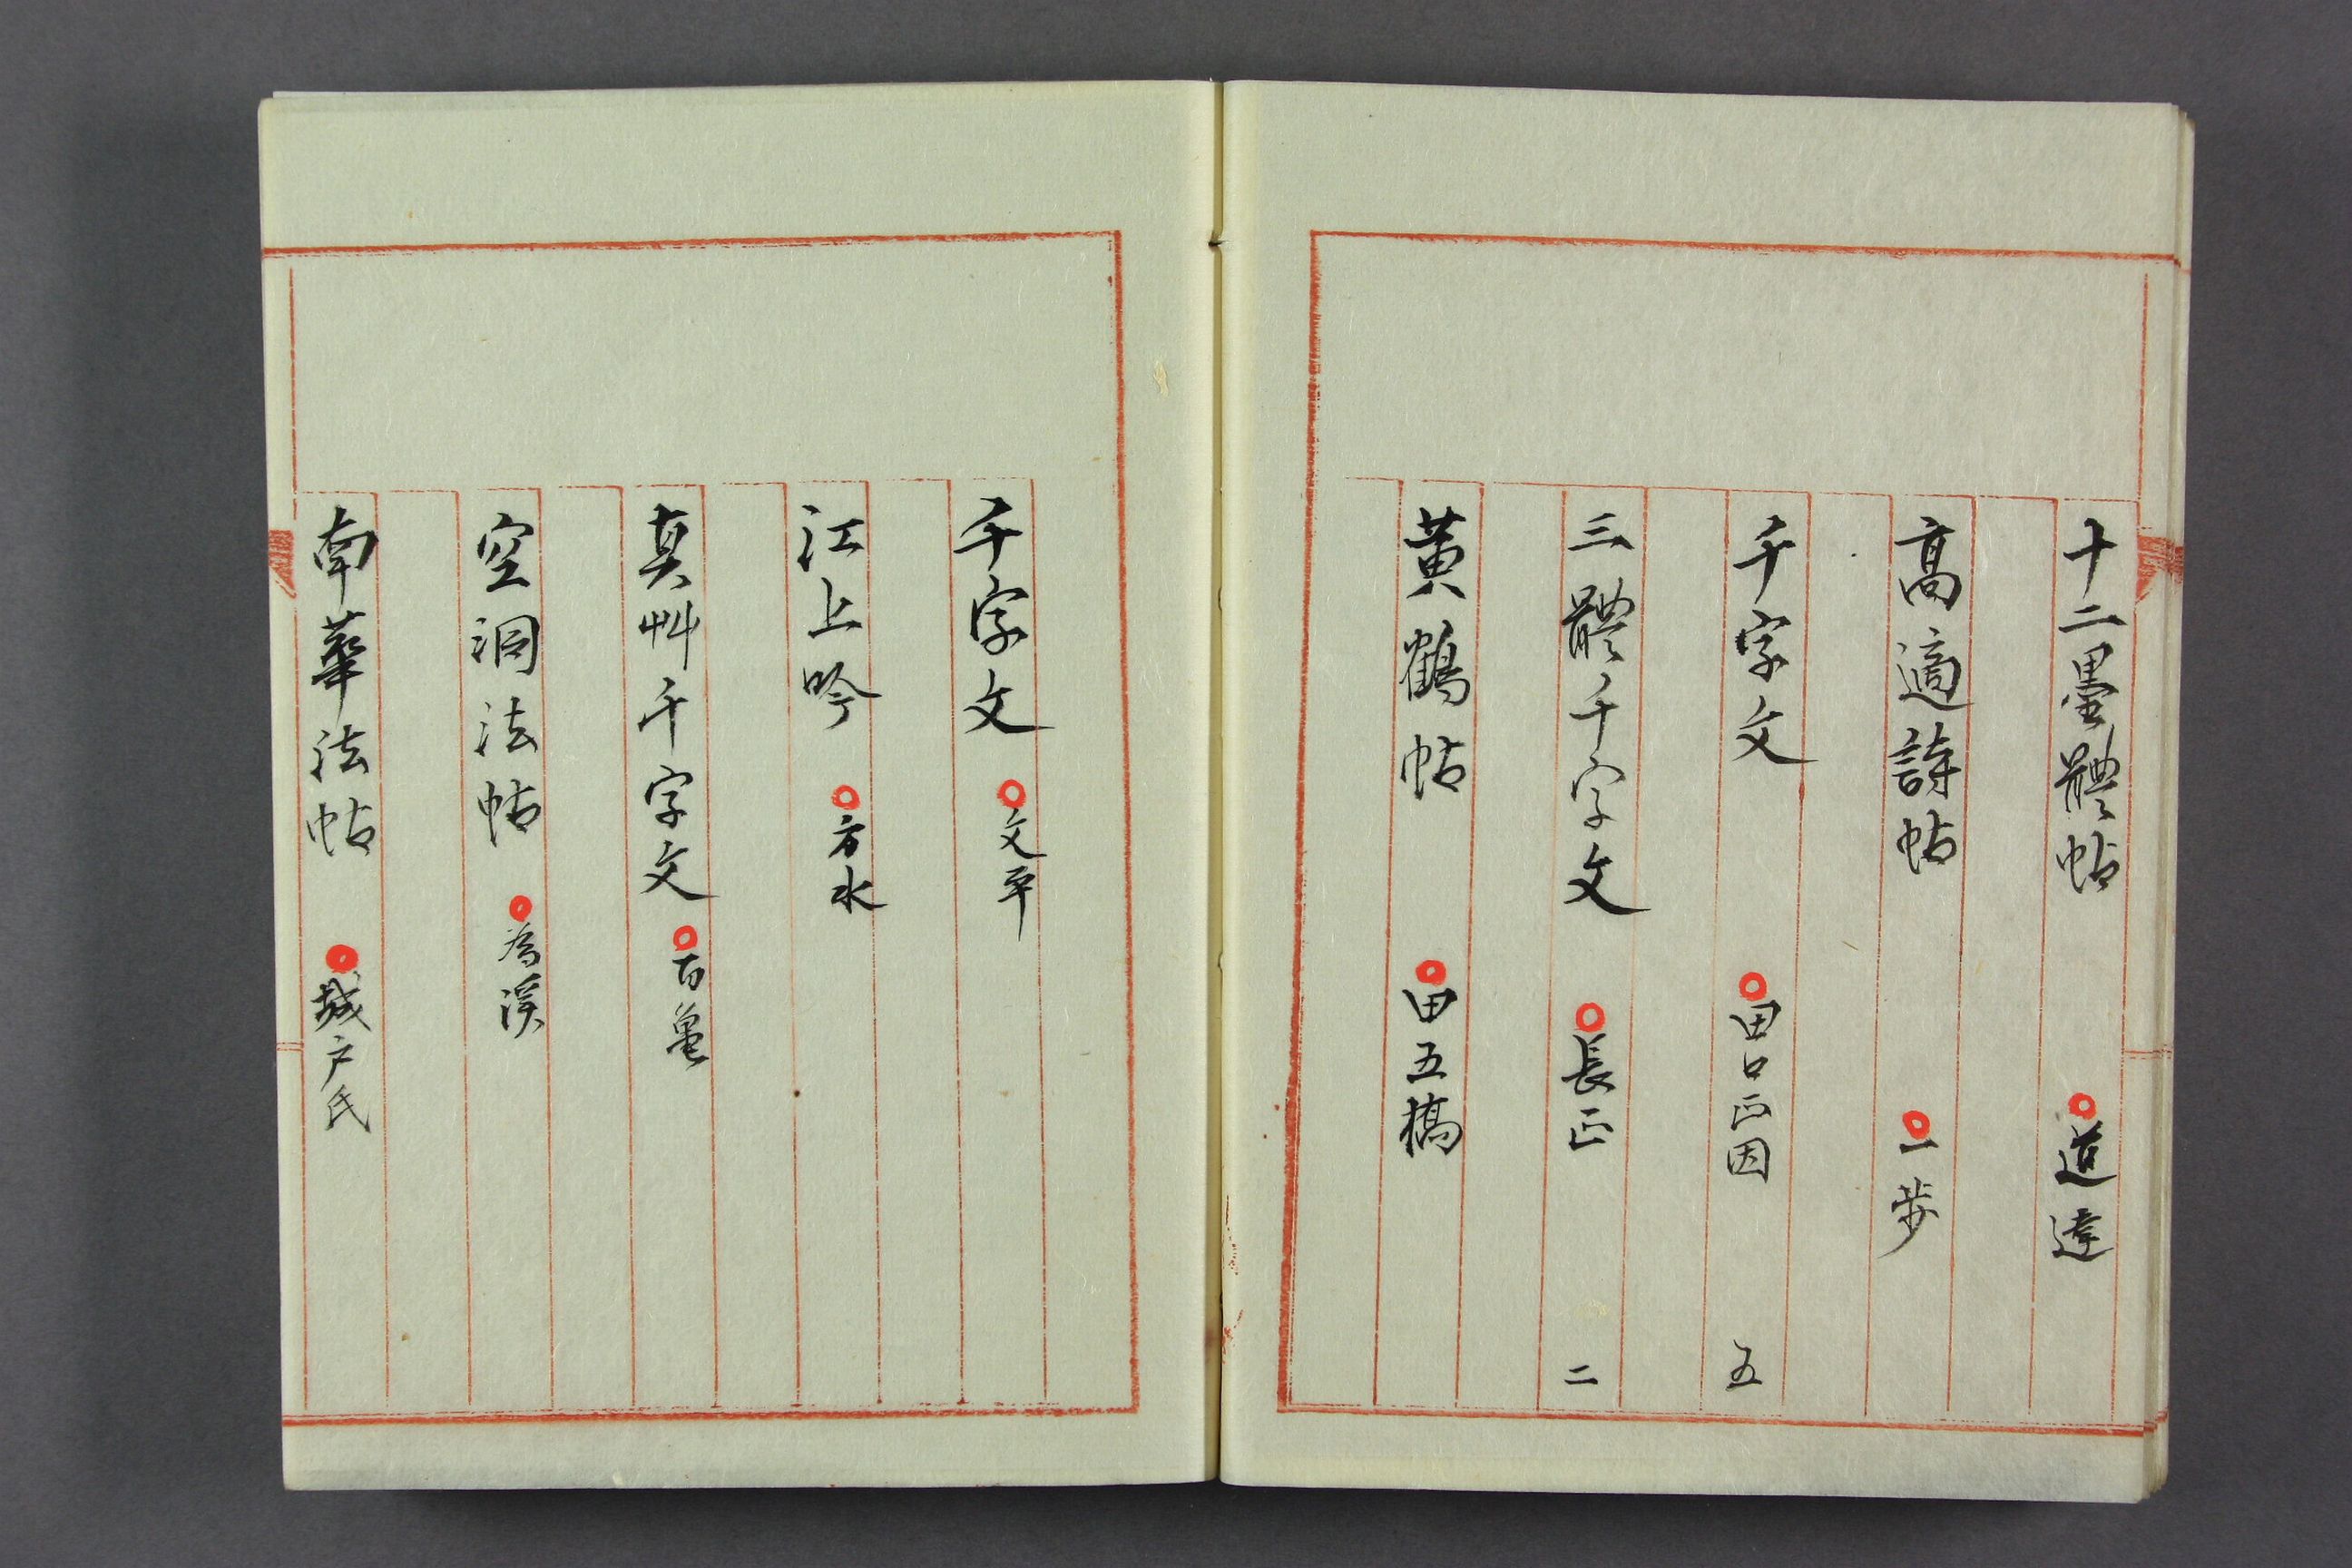 十二墨體帖 ○道達
高適詩帖 ○一步
千字文 ○田口正因 五
三體千字文 ○長正 二
黄鶴帖 ○田五橋
千字文 ○文平
江上吟 ○方水
真艸千字文 ○百亀
空洞法帖 ○為溪
南華法帖 ○城戸氏